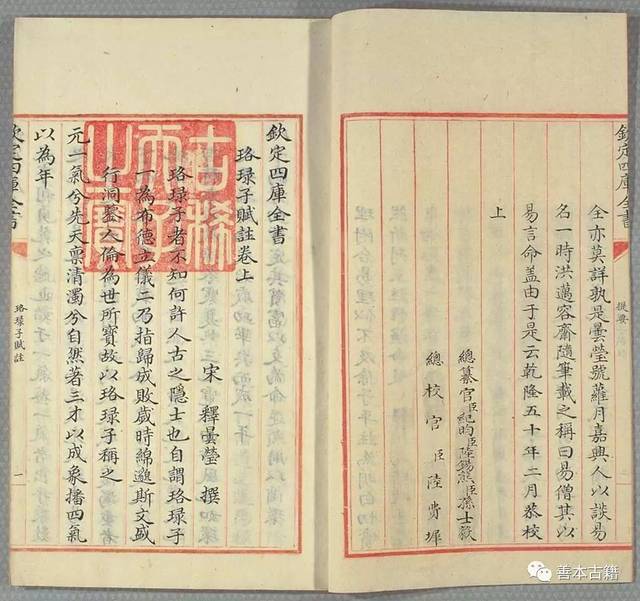 欽定四庫全書
提要
全亦莫詳孰是曇瑩號蘿月嘉興人以談易
名一時洪邁容齋隨筆載之稱曰易僧其以
易言命盖由于是云乾隆五十年二月恭校
上
總纂官臣紀昀臣陸錫熊臣孫士毅
總校官臣陸費墀
欽定四庫全書
珞琭子賦註卷上
宋釋曇瑩撰
珞琭子者不知何許人古之隱士也自謂珞琭子
一為布德立儀二乃指歸成敗歲時綿邈斯文盛
行洞鑒人倫為世所寳故以珞琭子稱之
元一氣兮先天禀清濁兮自然著三才以成象播四氣
以為年
古稀天子之寶
欽定四庫全書
珞琭子賦註
一
善本古籍